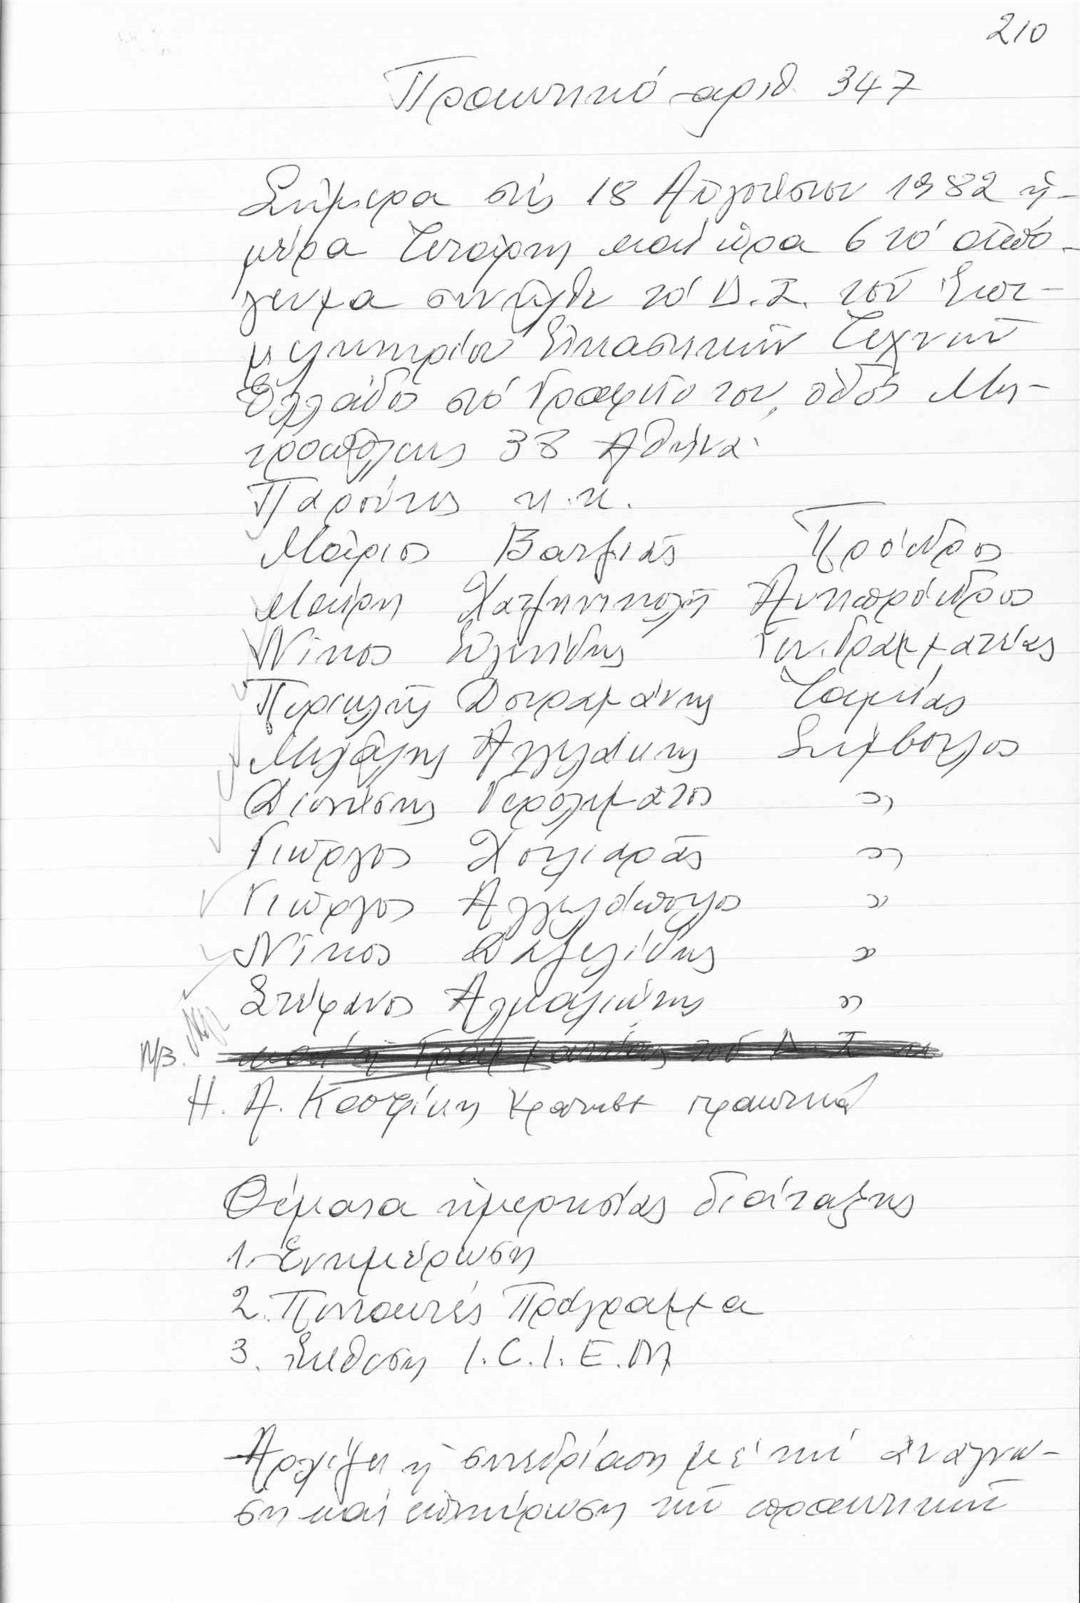 210
Πρακτικό αριθ. 347
Σήμερα στίς 18 Αὐγούστου 1982 ἡ-
μέρα Τετάρτη καί ὥρα 6 τό ἀπό-
γευμα συνῆλθε τό Δ.Σ. τοῦ Ἐπι-
μελητηρίου Εἰκαστικῶν Τεχνῶν
Ἑλλάδος στό Γραφεῖο του, ὁδός Μη-
τροπόλεως 38 Ἀθήνα.
Παρόντες κ.κ.
Μάριος Βατζιᾶς Πρόεδρος
Μαίρη Χατζηνικολῆ Ἀντιπρόεδρος
Νίκος Εὐγενίδης Γεν. Γραμματέας
Περικλῆς Δουραμάνης Ταμίας
Μιχάλης Ἀγγελάκης Σύμβουλος
Διονύσης Γερολυμάτος "
Γιῶργος Χουλιαρᾶς "
Γιῶργος Ἀγγελόπουλος "
Νίκος "
Στέφανος "
Η. Α. Κοσφίκη Κρατησε πρακτικά
Θέματα ἡμερησίας διάταξης
1. Ἐνημέρωση
2. Πρόγραμμα
3. Ἔκθεση I.C.I.E.M
Ἀρχίζει ἡ συνεδρίαση μέ τήν ἀνάγνω-
ση καί ἐπικύρωση τῶν πρακτικῶν